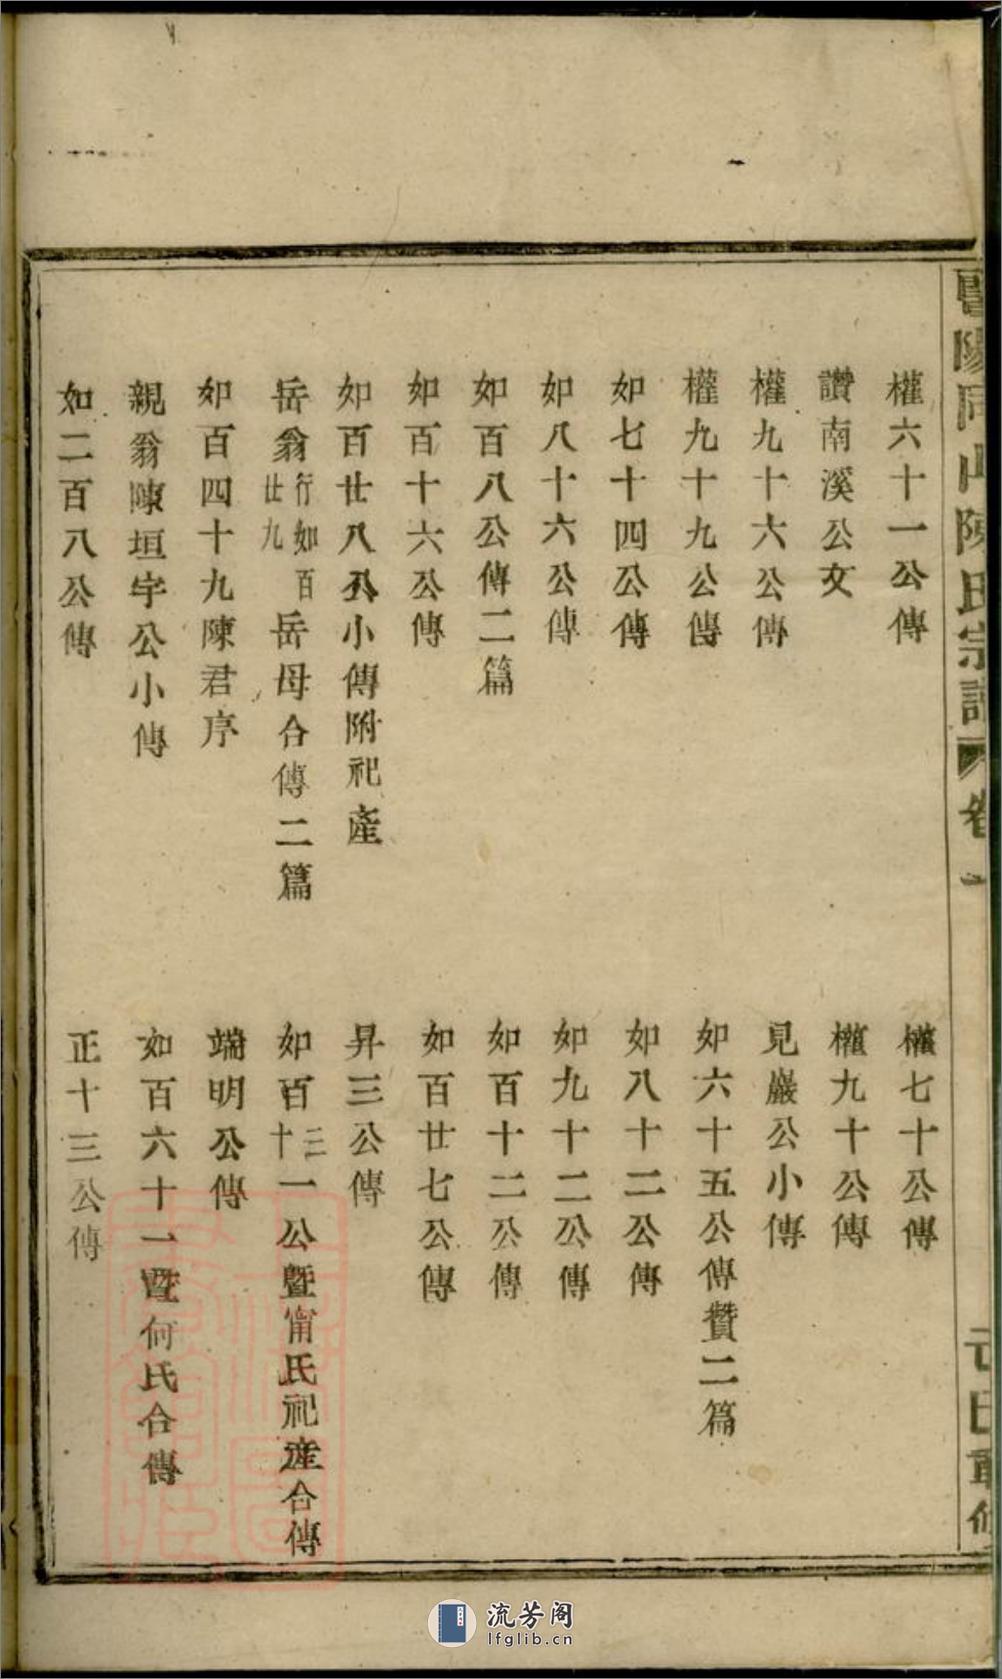 暨陽同山陳氏宗譜 卷一
權六十一公傳 權七十公傳
讚南溪公文 權九十公傳
權九十六公傳 見巖公小傳
權九十九公傳 如六十五公傳贊二篇
如七十四公傳 如八十二公傳
如八十六公傳 如九十二公傳
如百八公傳二篇 如百十二公傳
如百十六公傳 如百廿七公傳
如百廿八公小傳附祀產 昇三公傳
岳翁行如百廿九岳母合傳二篇 如百三十一公暨甯氏祀產合傳
如百四十九陳君序 端明公傳
親翁陳垣宇公小傳 如百六十一暨何氏合傳
如二百八公傳 正十三公傳
流芳阁
lfglib.cn